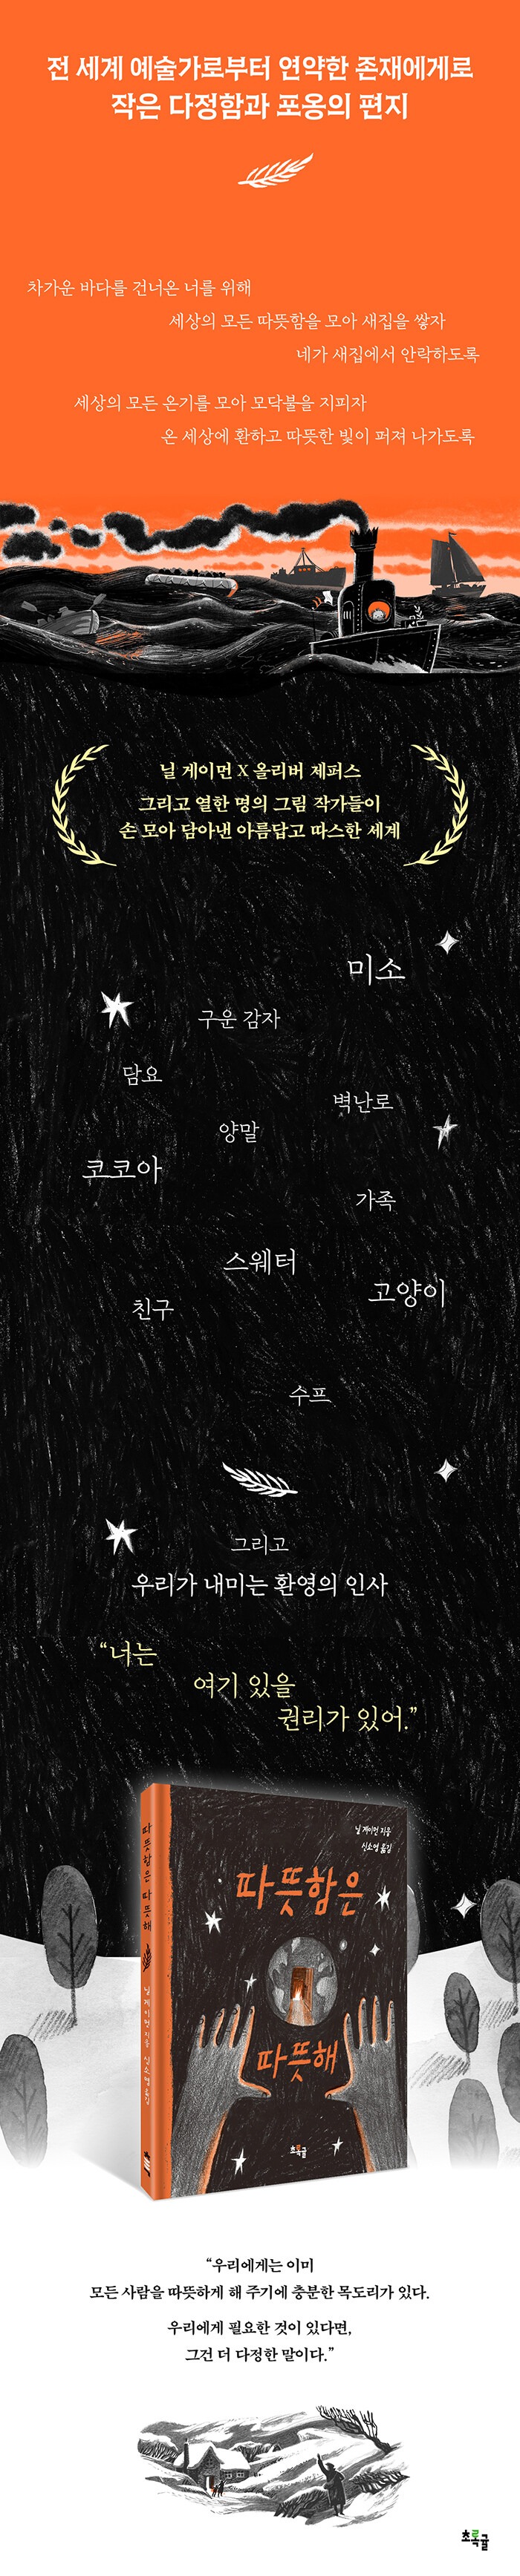 전 세계 예술가로부터 연약한 존재에게로
작은 다정함과 포옹의 편지
차가운 바다를 건너온 너를 위해
세상의 모든 따뜻함을 모아 새집을 쌓자
네가 새집에서 안락하도록
세상의 모든 온기를 모아 모닥불을 지피자
온 세상에 환하고 따뜻한 빛이 퍼져 나가도록
닐 게이먼 X 올리버 제퍼스
그리고 열한 명의 그림 작가들이
손 모아 담아낸 아름답고 따스한 세계
미소
구운 감자
담요
벽난로
양말
코코아
가족
스웨터
고양이
친구
수프
그리고
우리가 내미는 환영의 인사
“너는
여기 있을
권리가 있어.”
닐 게이먼 지음
신소영 옮김
따뜻함은
따뜻해
초록귤
따뜻함은 따뜻해
닐 게이먼 지음 신소영 옮김
“우리에게는 이미
모든 사람을 따뜻하게 해 주기에 충분한 목도리가 있다.
우리에게 필요한 것이 있다면,
그건 더 다정한 말이다.”
초록귤